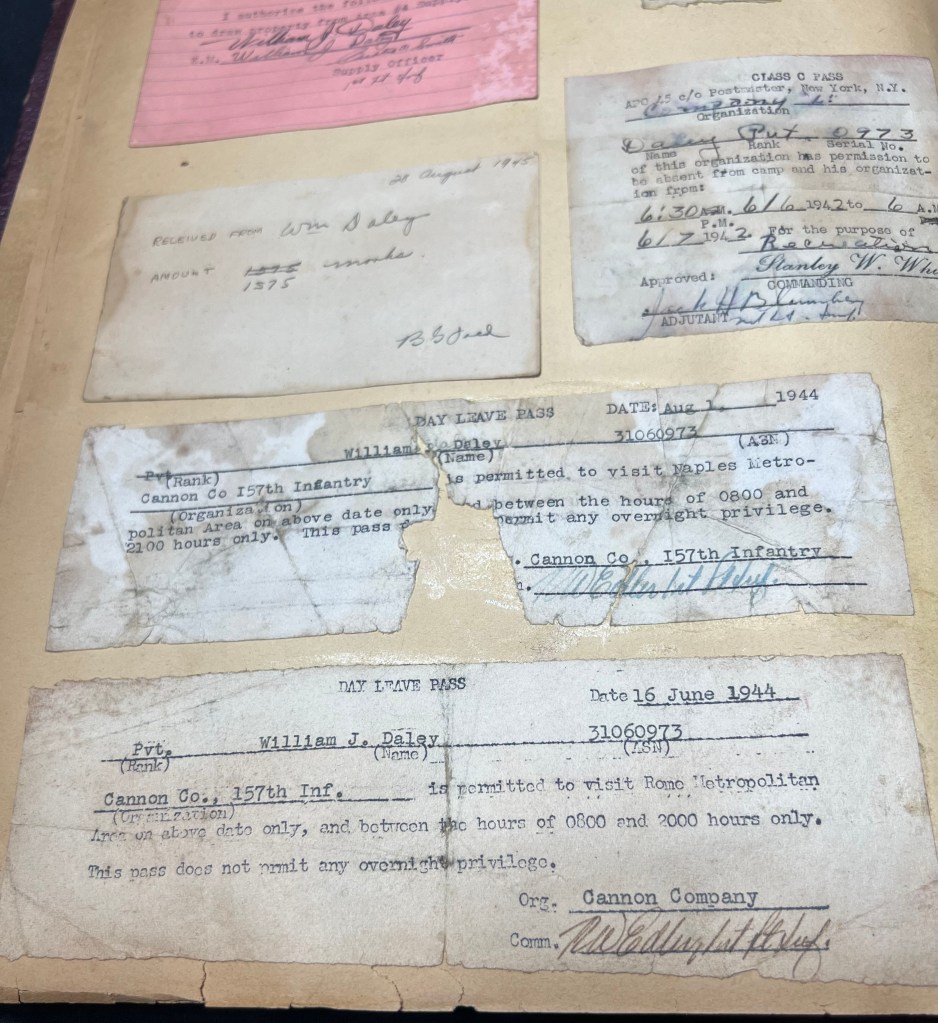 I authorize the
to draw property from Area
William J. Daley
William J.
Supply Officer
CLASS C PASS
APO 15 c/o Postmaster, New York, N.Y.
Company
Organization
Daley Pvt 0973
Name Rank Serial No.
of this organization has permission to
be absent from camp and his organizat-
ion from:
6:30 A.M. 6/6 1942 to 6 A.M
P.M.
6/7 1942. For the purpose of
Recreation
Approved: Stanley W. Whi
COMMANDING
Jack H
ADJUTANT
28 August 1945
RECEIVED FROM Wm Daley
AMOUNT 1375 marks.
1375
DAY LEAVE PASS DATE: Aug 1, 1944
William Daley 31060973
Pvt (Rank) (Name) (ASN)
Cannon Co I57th Infantry is permitted to visit Naples Metro-
(Organiza ion)
politan Area on above date only d between the hours of 0800 and
2100 hours only. This pass permit any overnight privilege.
. Cannon Co., I57th Infantry
DAY LEAVE PASS
Date 16 June 1944
Pvt. William J. Daley 31060973
(Rank) (Name) (ASN)
Cannon Co., 157th Inf. is permitted to visit Rome Metropolitan
(Organization)
Area on above date only, and between the hours of 0800 and 2000 hours only.
This pass does not prmit any overnight privilege.
Org. Cannon Company
Comm.